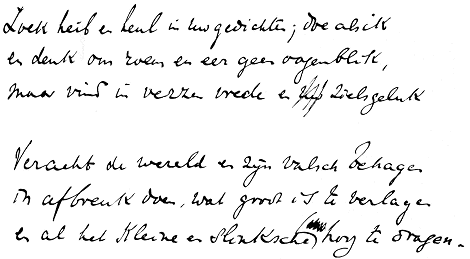 Zoek heil en heul in uw gedichten; doe als ik
en denk om roem en eer geen oogenblik,
maar vind in verzen vrede en zielsgeluk
Veracht de wereld en zijn valsch behagen
in afbreuk doen, wat groot is te verlagen
en al het kleine en slinksche hoog te dragen.